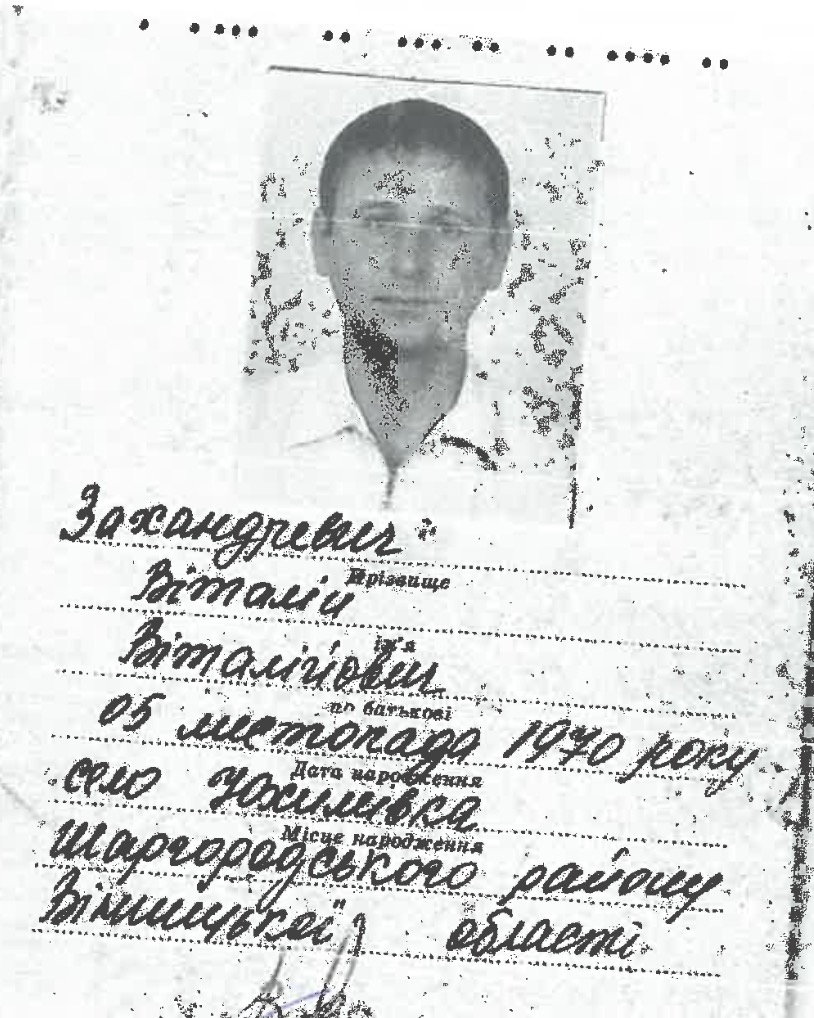 Захандревич
Прізвище
Віталій
ім'я
Віталійович
по батькові
05 листопада 1970 року
Дата народження
село Юхимівка
Місце народження
Шаргородського району
Вінницької області